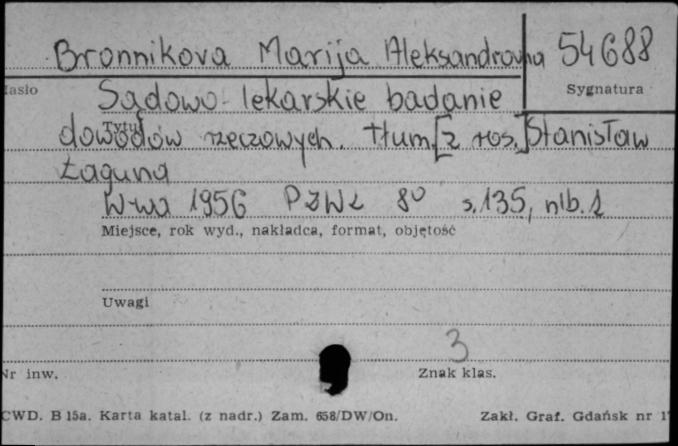 Bronnikova Marija Aleksandrovna 54688
Hasło Sygnatura
Sądowo-lekarskie badanie
Tytuł
dowodów rzeczowych. tłum. [z ros.] Stanisław
Łaguna
W-wa 1956 PZWL 8° s. 135, nlb. 1
Miejsce, rok wyd., nakładca, format, objętość
Uwagi
3
Nr inw. Znak klas.
CWD. B 15a. Karta katal. (z nadr.) Zam. 658/DW/On. Zakł. Graf. Gdańsk nr